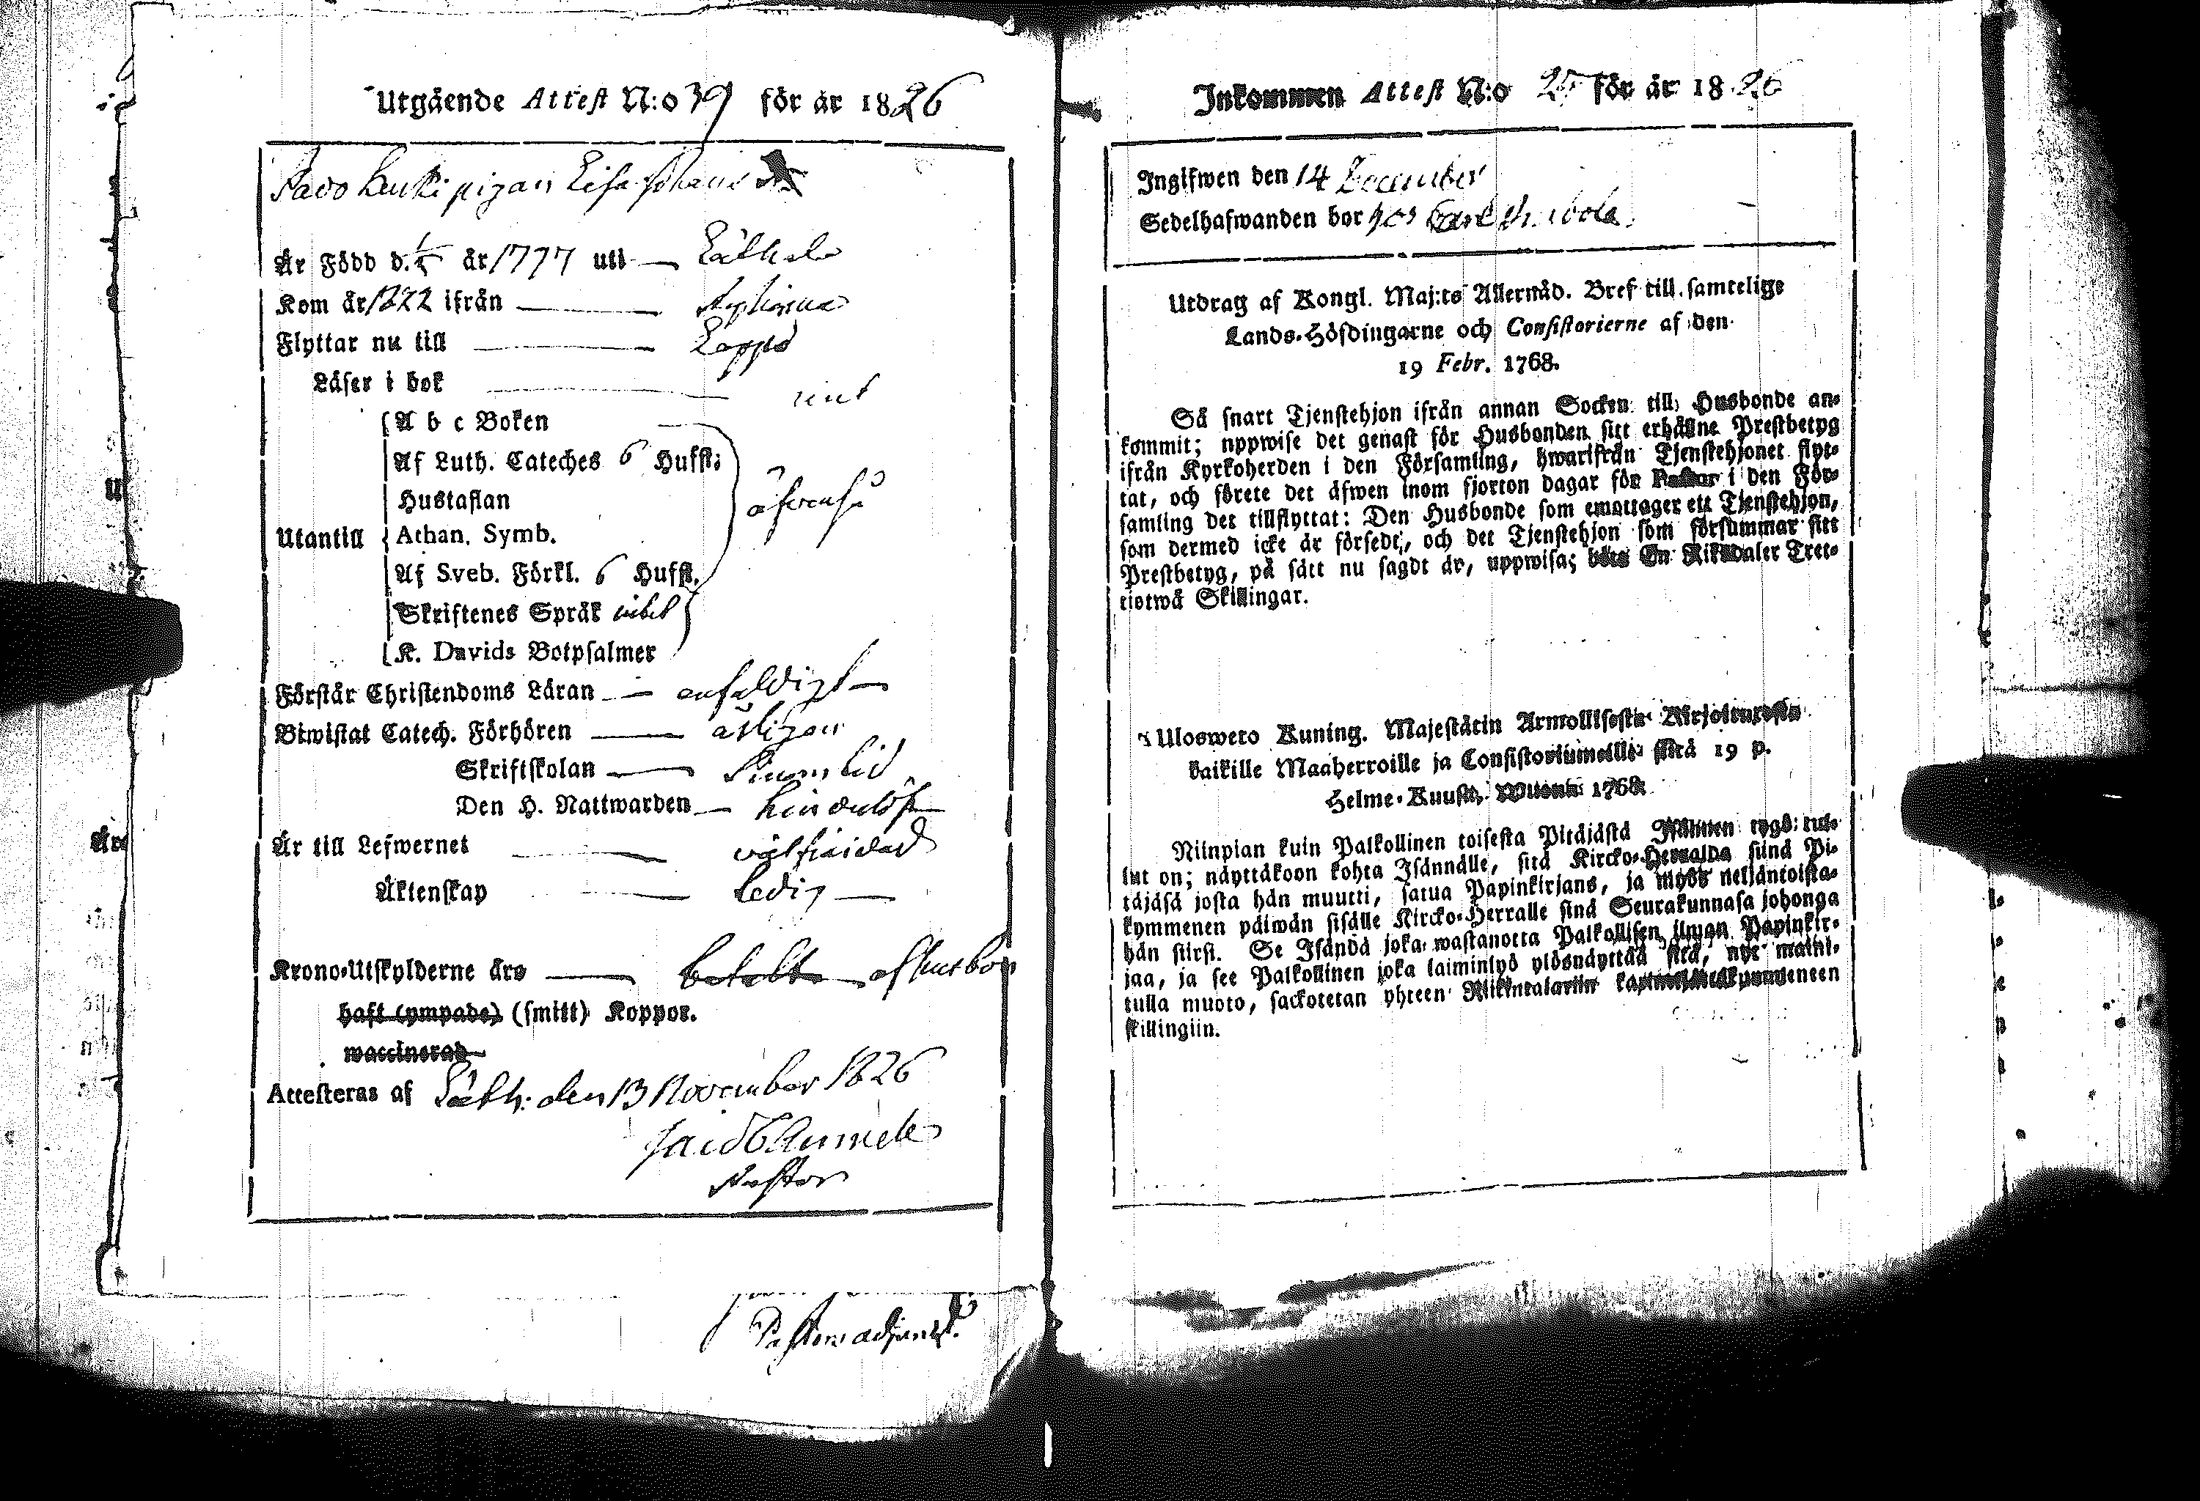 Utgående Attest N:o 39 för år 1826
Pavo Luuki pigan Lisa Johans
Är Född d. 1/5 år 1777 uti Lältkola
Kom år 1822 ifrån
Flyttar nu till Lappo
Läser i bok rent
A b c Boken
Af Luth. Cateches 6 Hufst:
Hustaflan
äfvenså
Utantill Athan. Symb.
Af Sveb. Förkl. 6 Hufst.
Skriftenes Språk
K. Davids Botpsalmer
Förstår Christendoms Läran enfaldigt
Biwistat Catech. Förhören årligen
Skriftskolan
Den H. Nattwarden hinderlös
Är till Lefwernet välfräjdad
Äktenskap ledig
Krono-Utskylderne äro betalte af husbon
haft (ympade) (smitt) Koppor.
waccinerad
Attesteras af den 13 November 1826
Pastor
Pastors adjunct.
Inkommen Attest N:o 25 för år 1826
Ingifwen den 14 December
Sedelhafwanden bor hos Carl
Utdrag af Kongl. Maj:ts Allernåd. Bref till samtelige
Lands-Höfdingarne och Consistorierne af den
19 Febr. 1768.
Så snart Tjenstehjon ifrån annan Socken till Husbonde an-
kommit; uppwise det genast för Husbonden sitt erhållne Prestbetyg
ifrån Kyrkoherden i den Församling, hwarifrån Tjenstehjonet flyt-
tat, och förete det äfwen inom fjorton dagar för Pastor i den För-
samling det tillflyttat: Den Husbonde som emottager ett Tjenstehjon,
som dermed icke är försedt, och det Tjenstehjon som försummar sitt
Prestbetyg, på sätt nu sagdt är, uppwisa; böte En Riksdaler Tret-
tiotwå Skillingar.
Ulosweto Kuning. Majestätin Armollisesta Kirjoituxesta
kaikille Maaherroille ja Consistoriumeille siitä 19 p.
Helme-Kuusa, Wuonna 1768.
Niinpian kuin Palkollinen toisesta Pitäjästä Isännän tygö tul-
lut on; näyttäköön kohta Isännälle, sitä Kircko-Herralda siinä Pi-
täjäsä josta hän muutti, satua Papinkirjans, ja myös neljäntoista-
kymmenen päiwän sisälle Kircko-Herralle siinä Seurakunnasa johonga
hän siirsi. Se Isändä joka wastanotta Palkollisen ilman Papinkir-
jaa, ja see Palkollinen joka laiminlyö ylösnäyttää sitä, nyt maini-
tulla muoto, sackotetan yhteen Riikintalariin kaxineljättäkymmeneen
skillingiin.